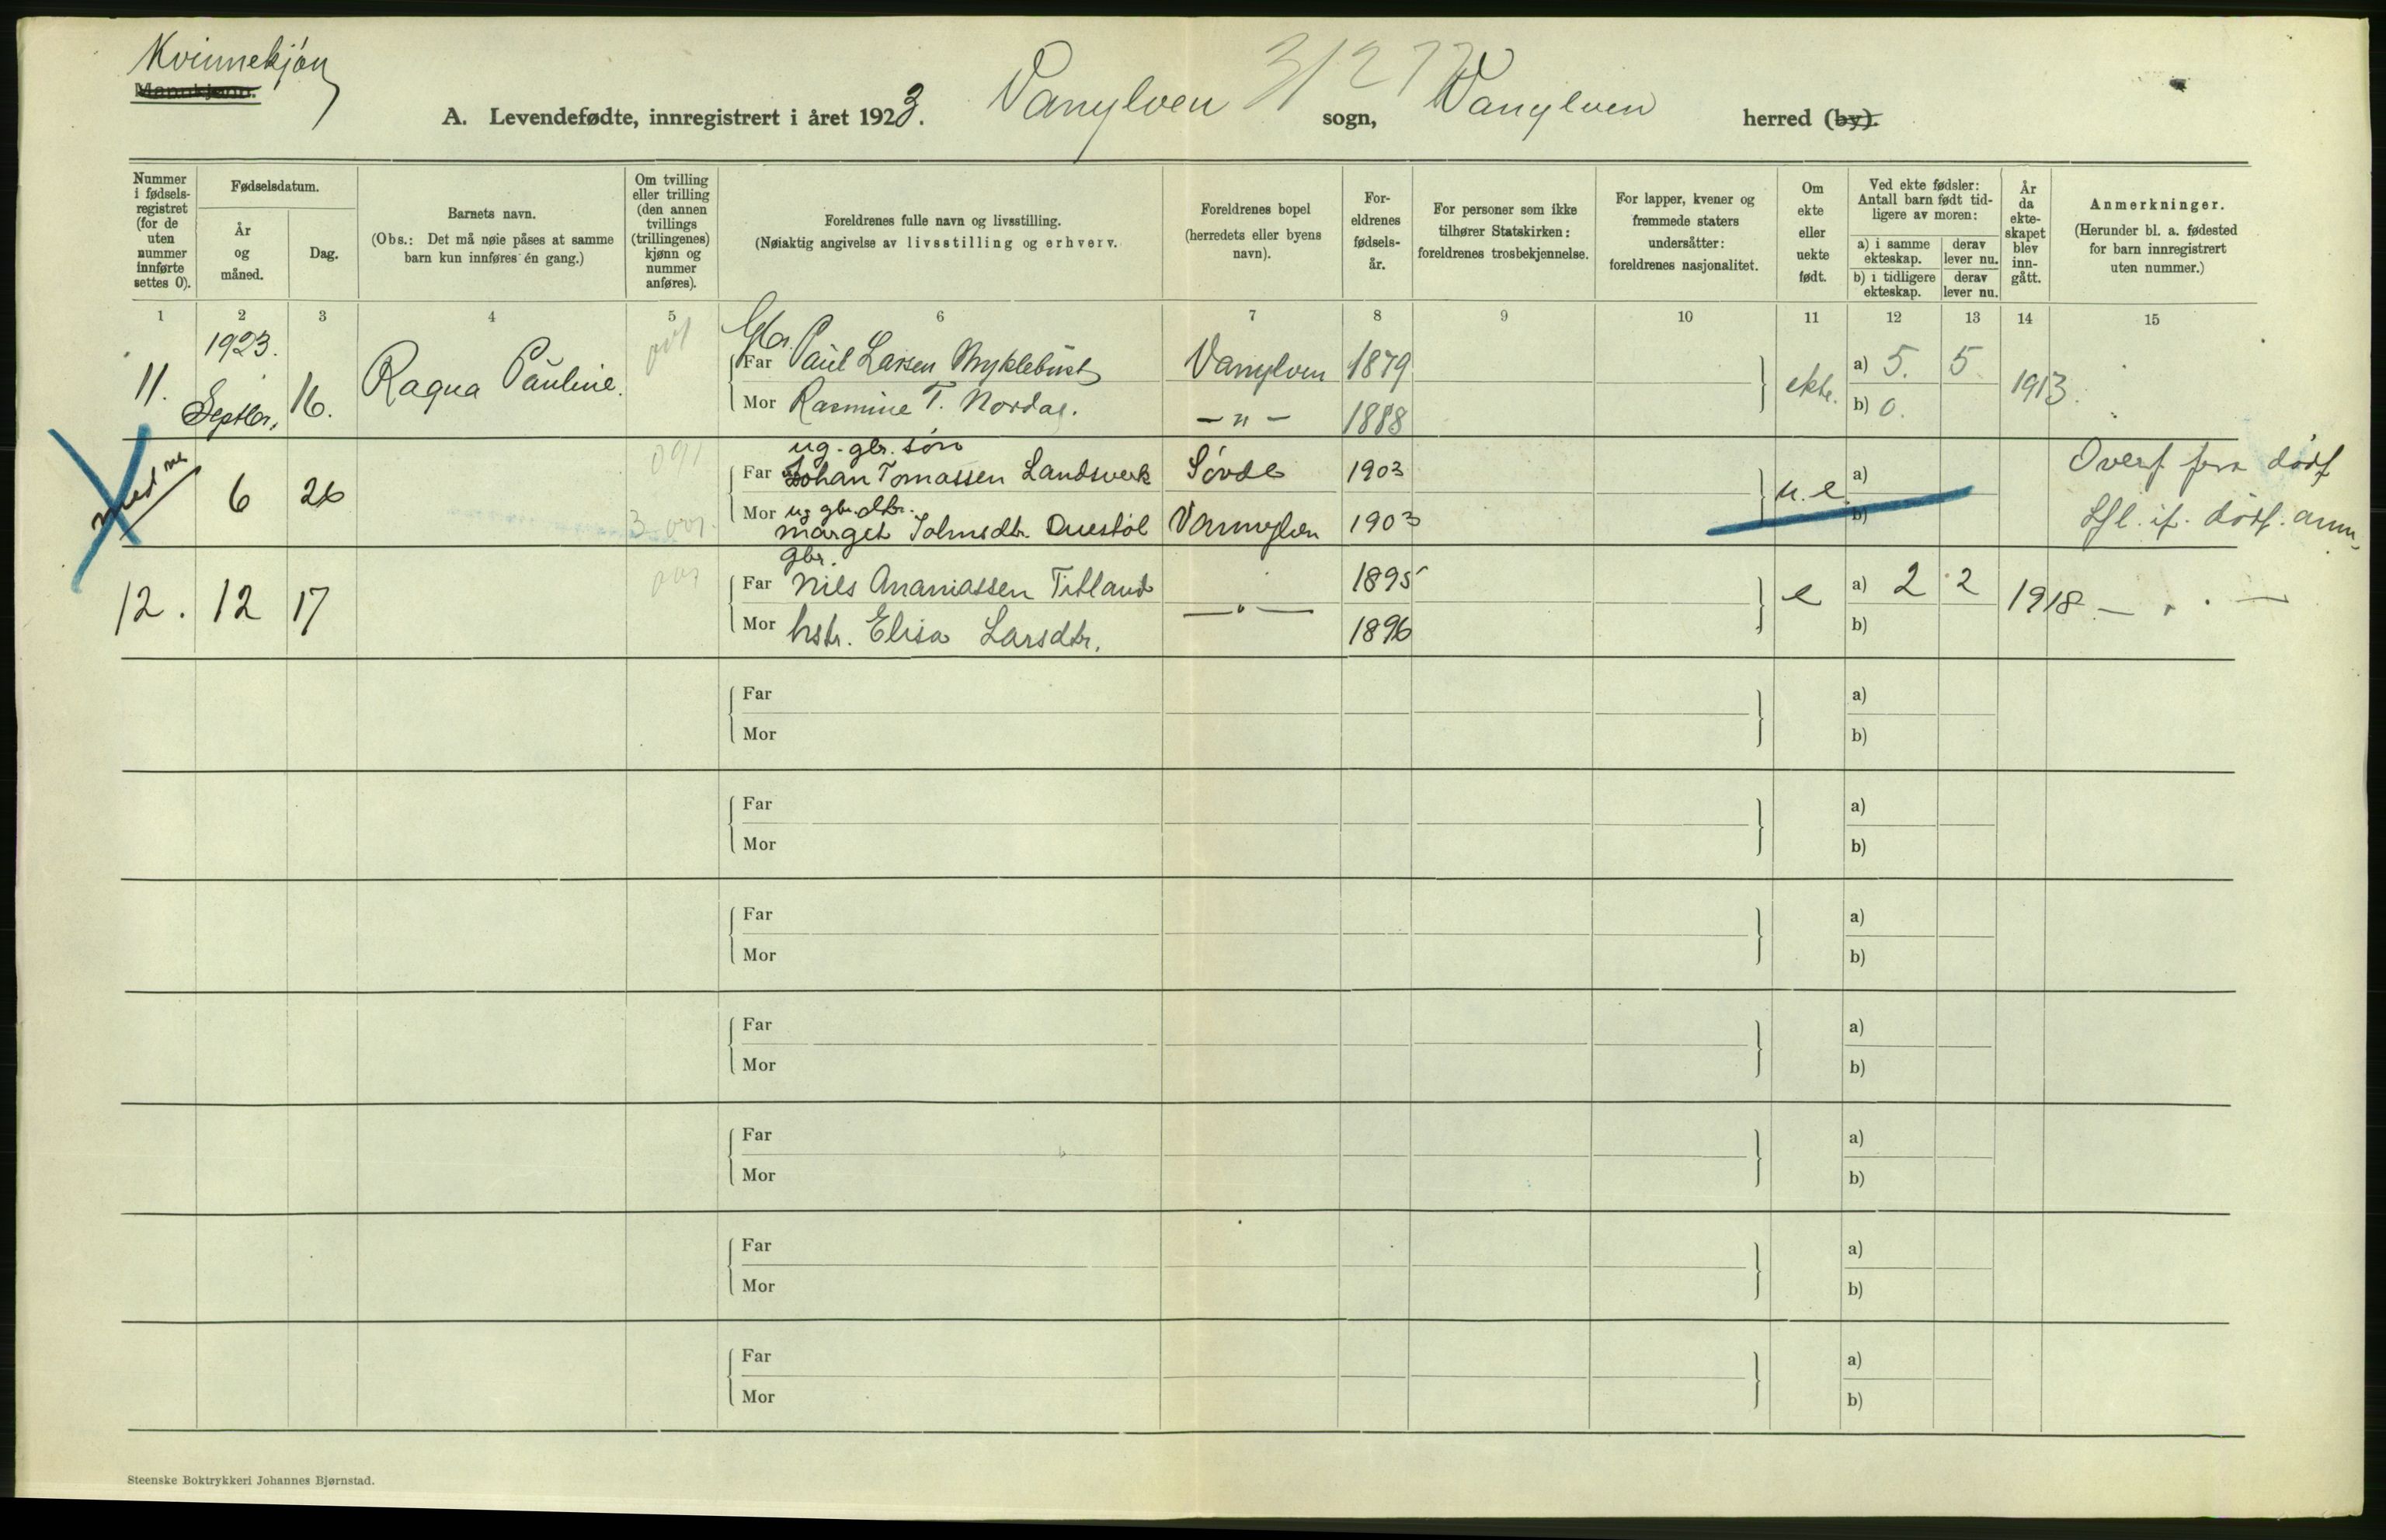 Kvinnekjön
Mannkjønn.
A. Levendefødte, innregistrert i året 1923. Vanylven sogn, Vanylven herred (by).
Nummer i fødselsregistret (for de uten nummer innførte settes 0).
Fødselsdatum.
År og måned.
Dag.
Barnets navn.
(Obs.: Det må nøie påses at samme barn kun innføres én gang.)
Om tvilling eller trilling (den annen tvillings (trillingenes) kjønn og nummer anføres).
Foreldrenes fulle navn og livsstilling.
(Nøiaktig angivelse av livsstilling og erhverv.
Foreldrenes bopel (herredets eller byens navn).
Foreldrenes fødselsår.
For personer som ikke tilhører Statskirken: foreldrenes trosbekjennelse.
For lapper, kvener og fremmede staters undersåtter: foreldrenes nasjonalitet.
Om ekte eller uekte født.
Ved ekte fødsler: Antall barn født tidligere av moren:
a) i samme ekteskap.
derav lever nu.
b) i tidligere ekteskap.
derav lever nu.
År da ekteskapet blev inngått.
Anmerkninger.
(Herunder bl. a. fødested for barn innregistrert uten nummer.)
1 2 3 4 5 6 7 8 9 10 11 12 13 14 15
1923.
11. Septbr. 16. Ragna Pauline.
Gbr.
Far Paul Larsen Myklebust Vanylven 1879
Mor Rasmine T. Nordal. — " — 1888
ekte. a) 5. 5 1913.
b) 0.
6 26
ug. gbr. søn
Far Johan Tomassen Landsverk Sövde 1903
ug gbr.dtr.
Mor Marget Johnsdtr. Vannylven 1903
u.e. a)
b)
Overf fra dödf
12. 12 17
gbr.
Far Nils Ananiassen Titland 1895
Mor hstr. Elisa Larsdtr. — " — 1896
e a) 2 2 1918
b)
Far
Mor
a)
b)
Far
Mor
a)
b)
Far
Mor
a)
b)
Far
Mor
a)
b)
Far
Mor
a)
b)
Far
Mor
a)
b)
Far
Mor
a)
b)
Steenske Boktrykkeri Johannes Bjørnstad.